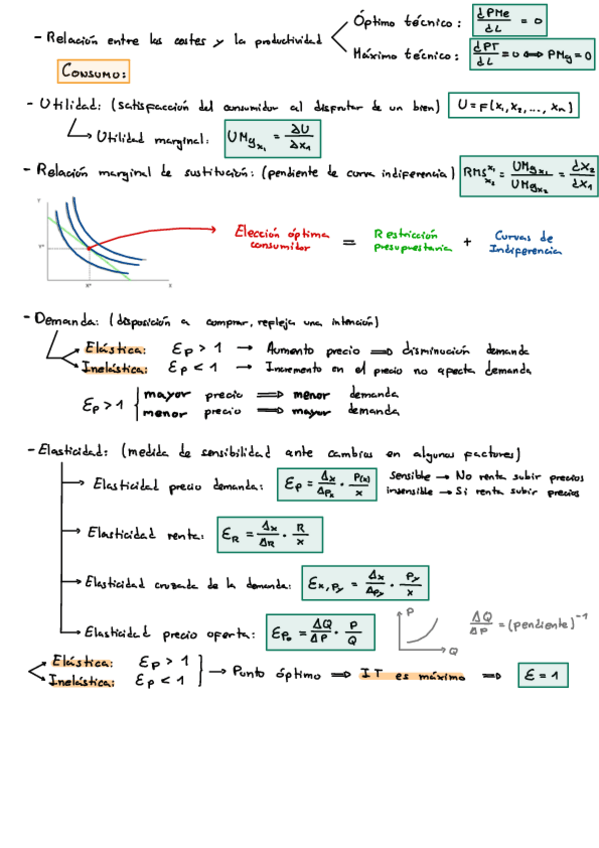 - Relación entre los costes y la productividad
Óptimo técnico: dPMe/dL = 0
Máximo técnico: dPT/dL = 0 ⟺ PMg = 0
CONSUMO:
- Utilidad: (satisfacción del consumidor al disfrutar de un bien) U = F(x₁, x₂, ..., xₙ)
Utilidad marginal: UMgₓ₁ = ΔU/Δx₁
- Relación marginal de sustitución: (pendiente de curva indiferencia) RMS^x₁_x₂ = UMgₓ₁/UMgₓ₂ = dx₂/dx₁
Y
Y*
X*
X
Elección óptima consumidor = Restricción presupuestaria + Curvas de Indiferencia
- Demanda: (disposición a comprar, refleja una intención)
Elástica: Ep > 1 → Aumento precio ⟹ disminución demanda
Inelástica: Ep < 1 → Incremento en el precio no afecta demanda
Ep > 1
mayor precio ⟹ menor demanda
menor precio ⟹ mayor demanda
- Elasticidad: (medida de sensibilidad ante cambios en algunos factores)
→ Elasticidad precio demanda: Ep = Δx/Δpₓ · P(x)/x
sensible → No renta subir precios
insensible → Si renta subir precios
→ Elasticidad renta: E_R = Δx/ΔR · R/x
→ Elasticidad cruzada de la demanda: Ex,py = Δx/Δpy · Py/x
→ Elasticidad precio oferta: Epₒ = ΔQ/ΔP · P/Q
P
Q
ΔQ/ΔP = (pendiente)⁻¹
Elástica: Ep > 1
Inelástica: Ep < 1
→ Punto óptimo ⟹ IT es máximo ⟹ E = 1